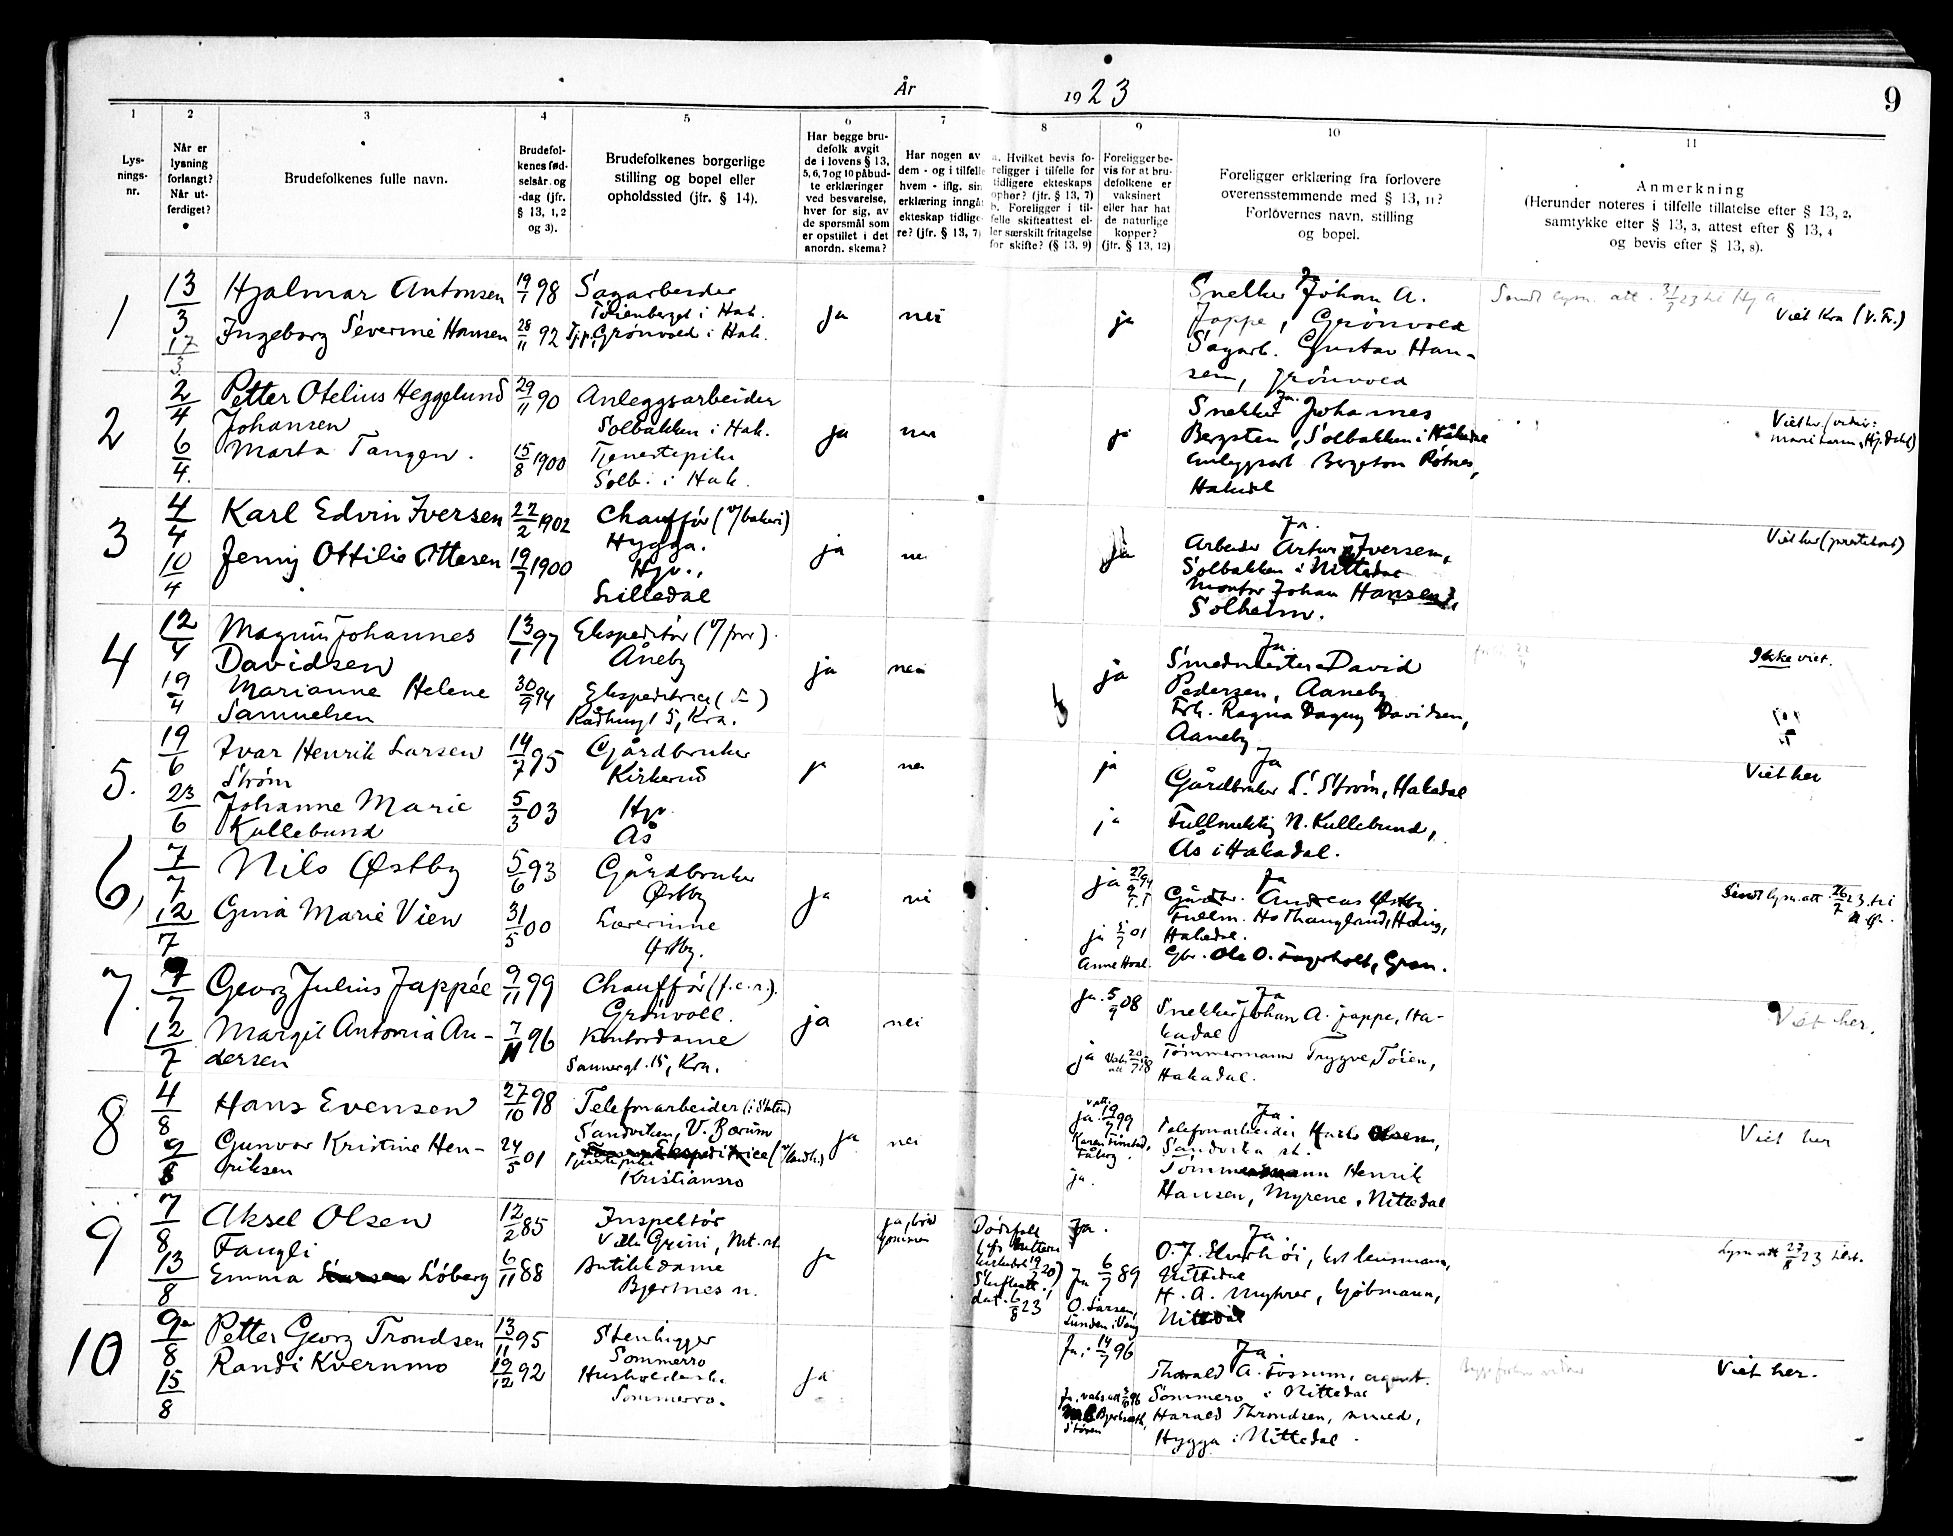 År 1923
9
1
2
3
4
5
6
7
8
9
10
11
Lys-
nings-
nr.
Når er
lysning
forlangt?
Når ut-
ferdiget?
Brudefolkenes fulle navn.
Brudefol-
kenes fød-
selsår og
-dag (jfr.
§ 13, 1, 2
og 3).
Brudefolkenes borgerlige
stilling og bopel eller
opholdssted (jfr. § 14).
Har begge bru-
defolk avgit
de i lovens § 13,
5, 6, 7 og 10 påbud-
te erklæringer
ved besvarelse,
hver for sig, av
de spørsmål som
er opstillet i det
anordn. skema?
Har nogen av
dem - og i tilfelle
hvem - iflg. sin
erklæring inngåt
ekteskap tidlige-
re? (jfr. § 13, 7)
a. Hvilket bevis fo-
religger i tilfelle for
tidligere ekteskaps
ophør? (jfr. § 13, 7)
b. Foreligger i til-
felle skifteattest el-
ler særskilt fritagelse
for skifte? (§ 13, 9)
Foreligger be-
vis for at bru-
defolkene er
vaksinert
eller har hat
de naturlige
kopper?
(jfr. § 13, 12)
Foreligger erklæring fra forlovere
overensstemmende med § 13, 11?
Forlovernes navn, stilling
og bopel.
Anmerkning
(Herunder noteres i tilfelle tillatelse efter § 13, 2,
samtykke efter § 13, 3, attest efter § 13, 4
og bevis efter § 13, 8).
1
13/3
17/3
Hjalmar Antonsen
Ingeborg Severine Hansen
19/1 98
28/11 92
Sagarbeider
Tøienberget i Hak.
Tjp. Grønvold i Hak.
ja
nei
ja
Ja
Snekker Johan A.
Jappe, Grønvold
Sagarb. Gustav Han-
sen, Grønvold
Sendt lysn. att. 31/3 23 til Hj A
Viet Kra (V. Fr.)
2
2/4
6/4
Petter Otelius Heggelund
Johansen
Marta Tangen.
29/11 90
15/8 1900
Anleggsarbeider
Solbakken i Hak.
Tjenestepike
Solb. i Hak.
ja
nei
ja
Ja.
Snekker Johannes
Bergsten, Solbakken i Hakedal
Anleggsarb Bergeton Rotnes,
Hakedal
3
4/4
10/4
Karl Edvin Iversen
Jenny Ottilie Ottesen
22/2 1902
19/7 1900
Chauffør (v/bakeri)
Hygga.
Hjv.,
Lilledal
ja
nei
ja
Ja.
Arbeider Artur Iversen,
Solbakken i Nittedal
Montør Johan Hansen,
Solheim.
4
12/4
19/4
Magnus Johannes
Davidsen
Marianne Helene
Samuelsen
13/1 97
30/9 94
Ekspeditør (v/forr).
Åneby
Ekspeditrice
Rådhusgt 5, Kra.
ja
nei
ja
Ja.
Smedmester David
Pedersen, Aaneby
Frk. Ragna Dagny Davidsen,
Aaneby
Ikke viet.
5.
19/6
23/6
Ivar Henrik Larsen
Strøm
Johanne Marie
Kullebund
14/7 95
5/3 03
Gårdbruker
Kirkerud
Hjv.
Ås
ja
nei
ja
ja
Ja
Gårdbruker L. Strøm, Hakadal
Fullmektig N. Kullebund,
Ås i Hakadal.
Viet her
6,
7/7
12/7
Nils Østby
Gina Marie Vien
5/6 93
31/5 00
Gårdbruker
Østby
Lærerinne
Østby.
ja
nei
ja
ja 01
Anne Hval.
Ja
Gårdbr. Andreas Østby.
Hakedal.
Gbr. Ole O. Fagerholt, Gran.
Sendt lysn. att. 26/7 23 til
N. Ø.
7.
7/7
12/7
Georg Julius Jappée
Margit Antonia An-
dersen
9/11 99
7/11 96
Chauffør (f.e.r.).
Grønvoll.
Kontordame
Sannergt. 15, Kra.
ja
nei
ja. 5/9 08
ja
Ja
Snekker Johan A. Jappe, Ha-
kadal
Tømmermann Trygve Tøien,
Hakadal.
Viet her.
8
4/8
9/8
Hans Evensen
Gunvor Kristine Hen-
riksen
27/10 98
24/5 01
Telefonarbeider (i Staten)
Sandviken, V. Bærum
Tjenestepike
Kristiansro
ja
nei
ja. 19/7 99
ja.
Ja.
Telefonarbeider Karlo Olsen,
Sandvika st.
Tømmermann Henrik
Hansen, Myrene, Nittedal
Viet her
9
7/8
13/8
Aksel Olsen
Fangli
Emma Løberg
12/2 85
6/11 88
Inspektør
Ville Grini, Nit. st.
Butikkdame
Bjertnes n.
ja
ja, brud-
gommen
Dødsfall
Skifteatt.
dat. 6/8 23
Ja.
Ja 6/7 89
O. Larsen,
Lunden i Vang
Ja.
O. J. Elverhøi, lensmann,
Nittedal
H. A. Myhrer, kjøbmann,
Nittedal
Lysn att 27/8 23
10
9/8
15/8
Petter Georg Trondsen
Randi Kvernmo
13/11 95
19/12 92
Stenhugger
Sommerro
Husholderske
Sommerro.
ja
Ja. 14/7 96
Støren
Ja.
Thorald A. Fossum, agent.
Sommero i Nittedal
Harald Throndsen, smed,
Hygga i Nittedal.
Viet her.